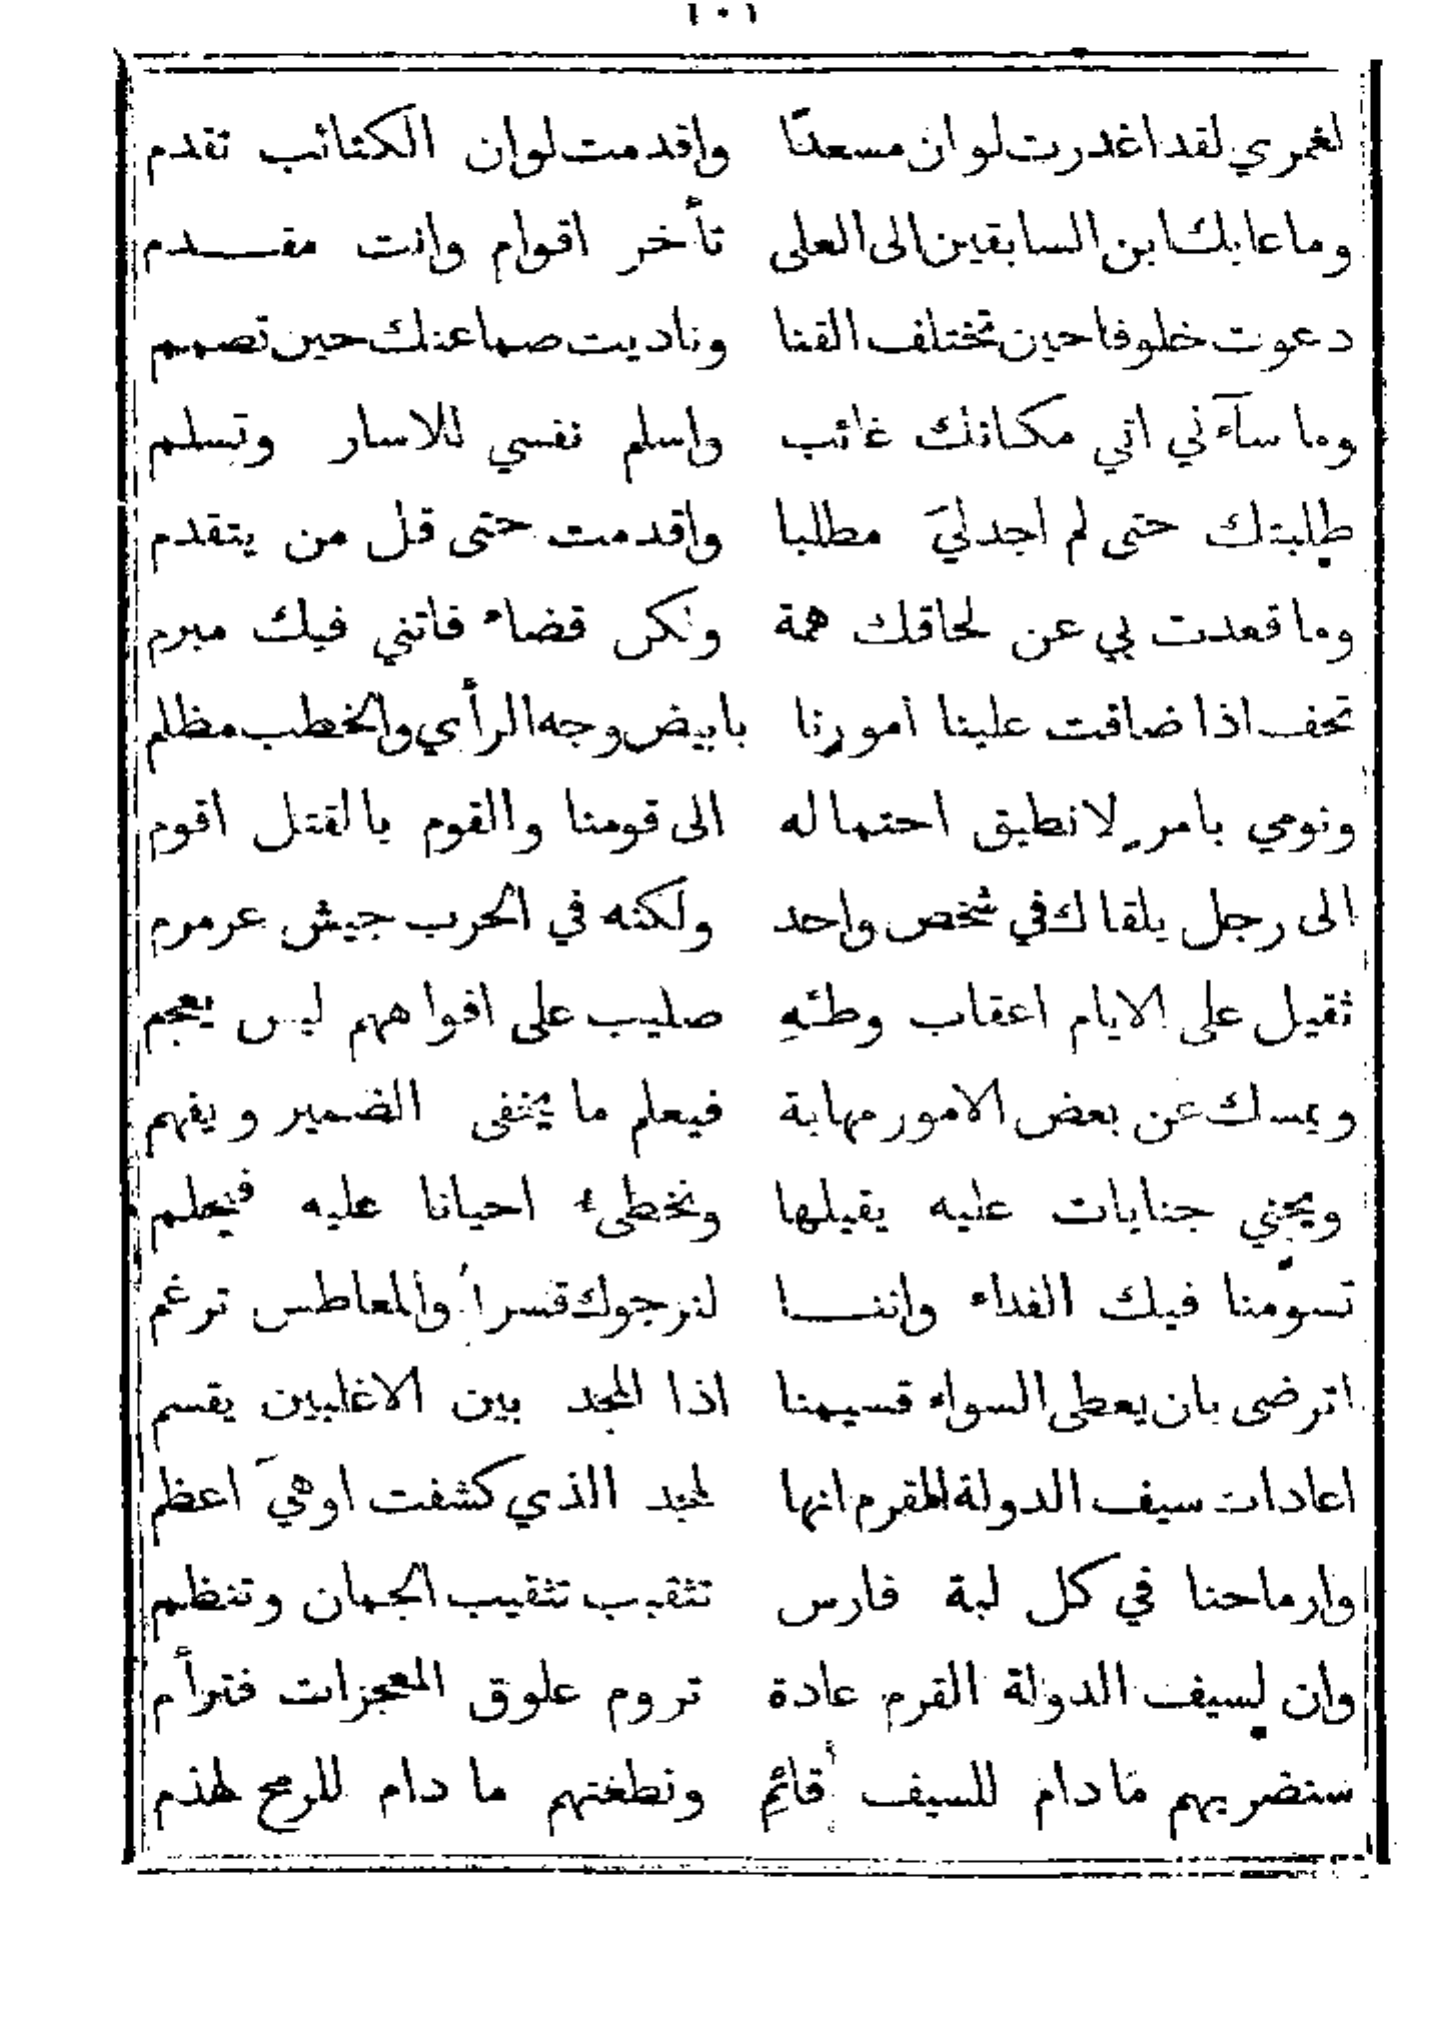 ١٠١
لعمري لقد اغدرت لو ان مسعدًا وإقدمت لوان الكتائب تقدم
وما عابك ابن السابقين الى العلى تأخر اقوام وإنت مقــدم
دعوت خلوفا حين تختلف القنا وناديت صما عنك حين تصمم
وما سآءني اني مكانك غائب وإسلم نفسي للاسار وتسلم
طلبتك حتى لم اجد ليَ مطلبا وإقدمت حتى قل من يتقدم
وما قعدت بي عن لحاقك همة ولكن قضاء فاتني فيك مبرم
تحف اذا ضاقت علينا امورنا بابيض وجه الرأي والخطب مظلم
ونومي بامرٍ لا نطيق احتماله الى قومنا والقوم بالقتل اقوم
الى رجل يلقاك في شخص وإحد ولكنه في الحرب جيش عرمرم
ثقيل على الايام اعقاب وطئهِ صليب على افواههم ليس يعجم
ويمسك عن بعض الامور مهابة فيعلم ما يخفى الضمير ويفهم
ويجني جنايات عليه يقيلها ونخطىء احيانا عليه فيحلم
تسوّمنا فيك الفداء وإننــا لنرجوك قسراً والمعاطس ترغم
اترضى بان يعطى السواء قسيمنا اذا المجد بين الاغلبين يقسم
اعادات سيف الدولة المقرم انها لمجد الذي كشفت او هيَ اعظم
وإرماحنا في كل لبة فارس تثقب تثقيب الجمان وتنظم
وإن لسيف الدولة القرم عادة تروم علوق المعجزات فترأم
سنضربهم ما دام للسيف قائمٌ ونطعنهم ما دام للرمح لهذم